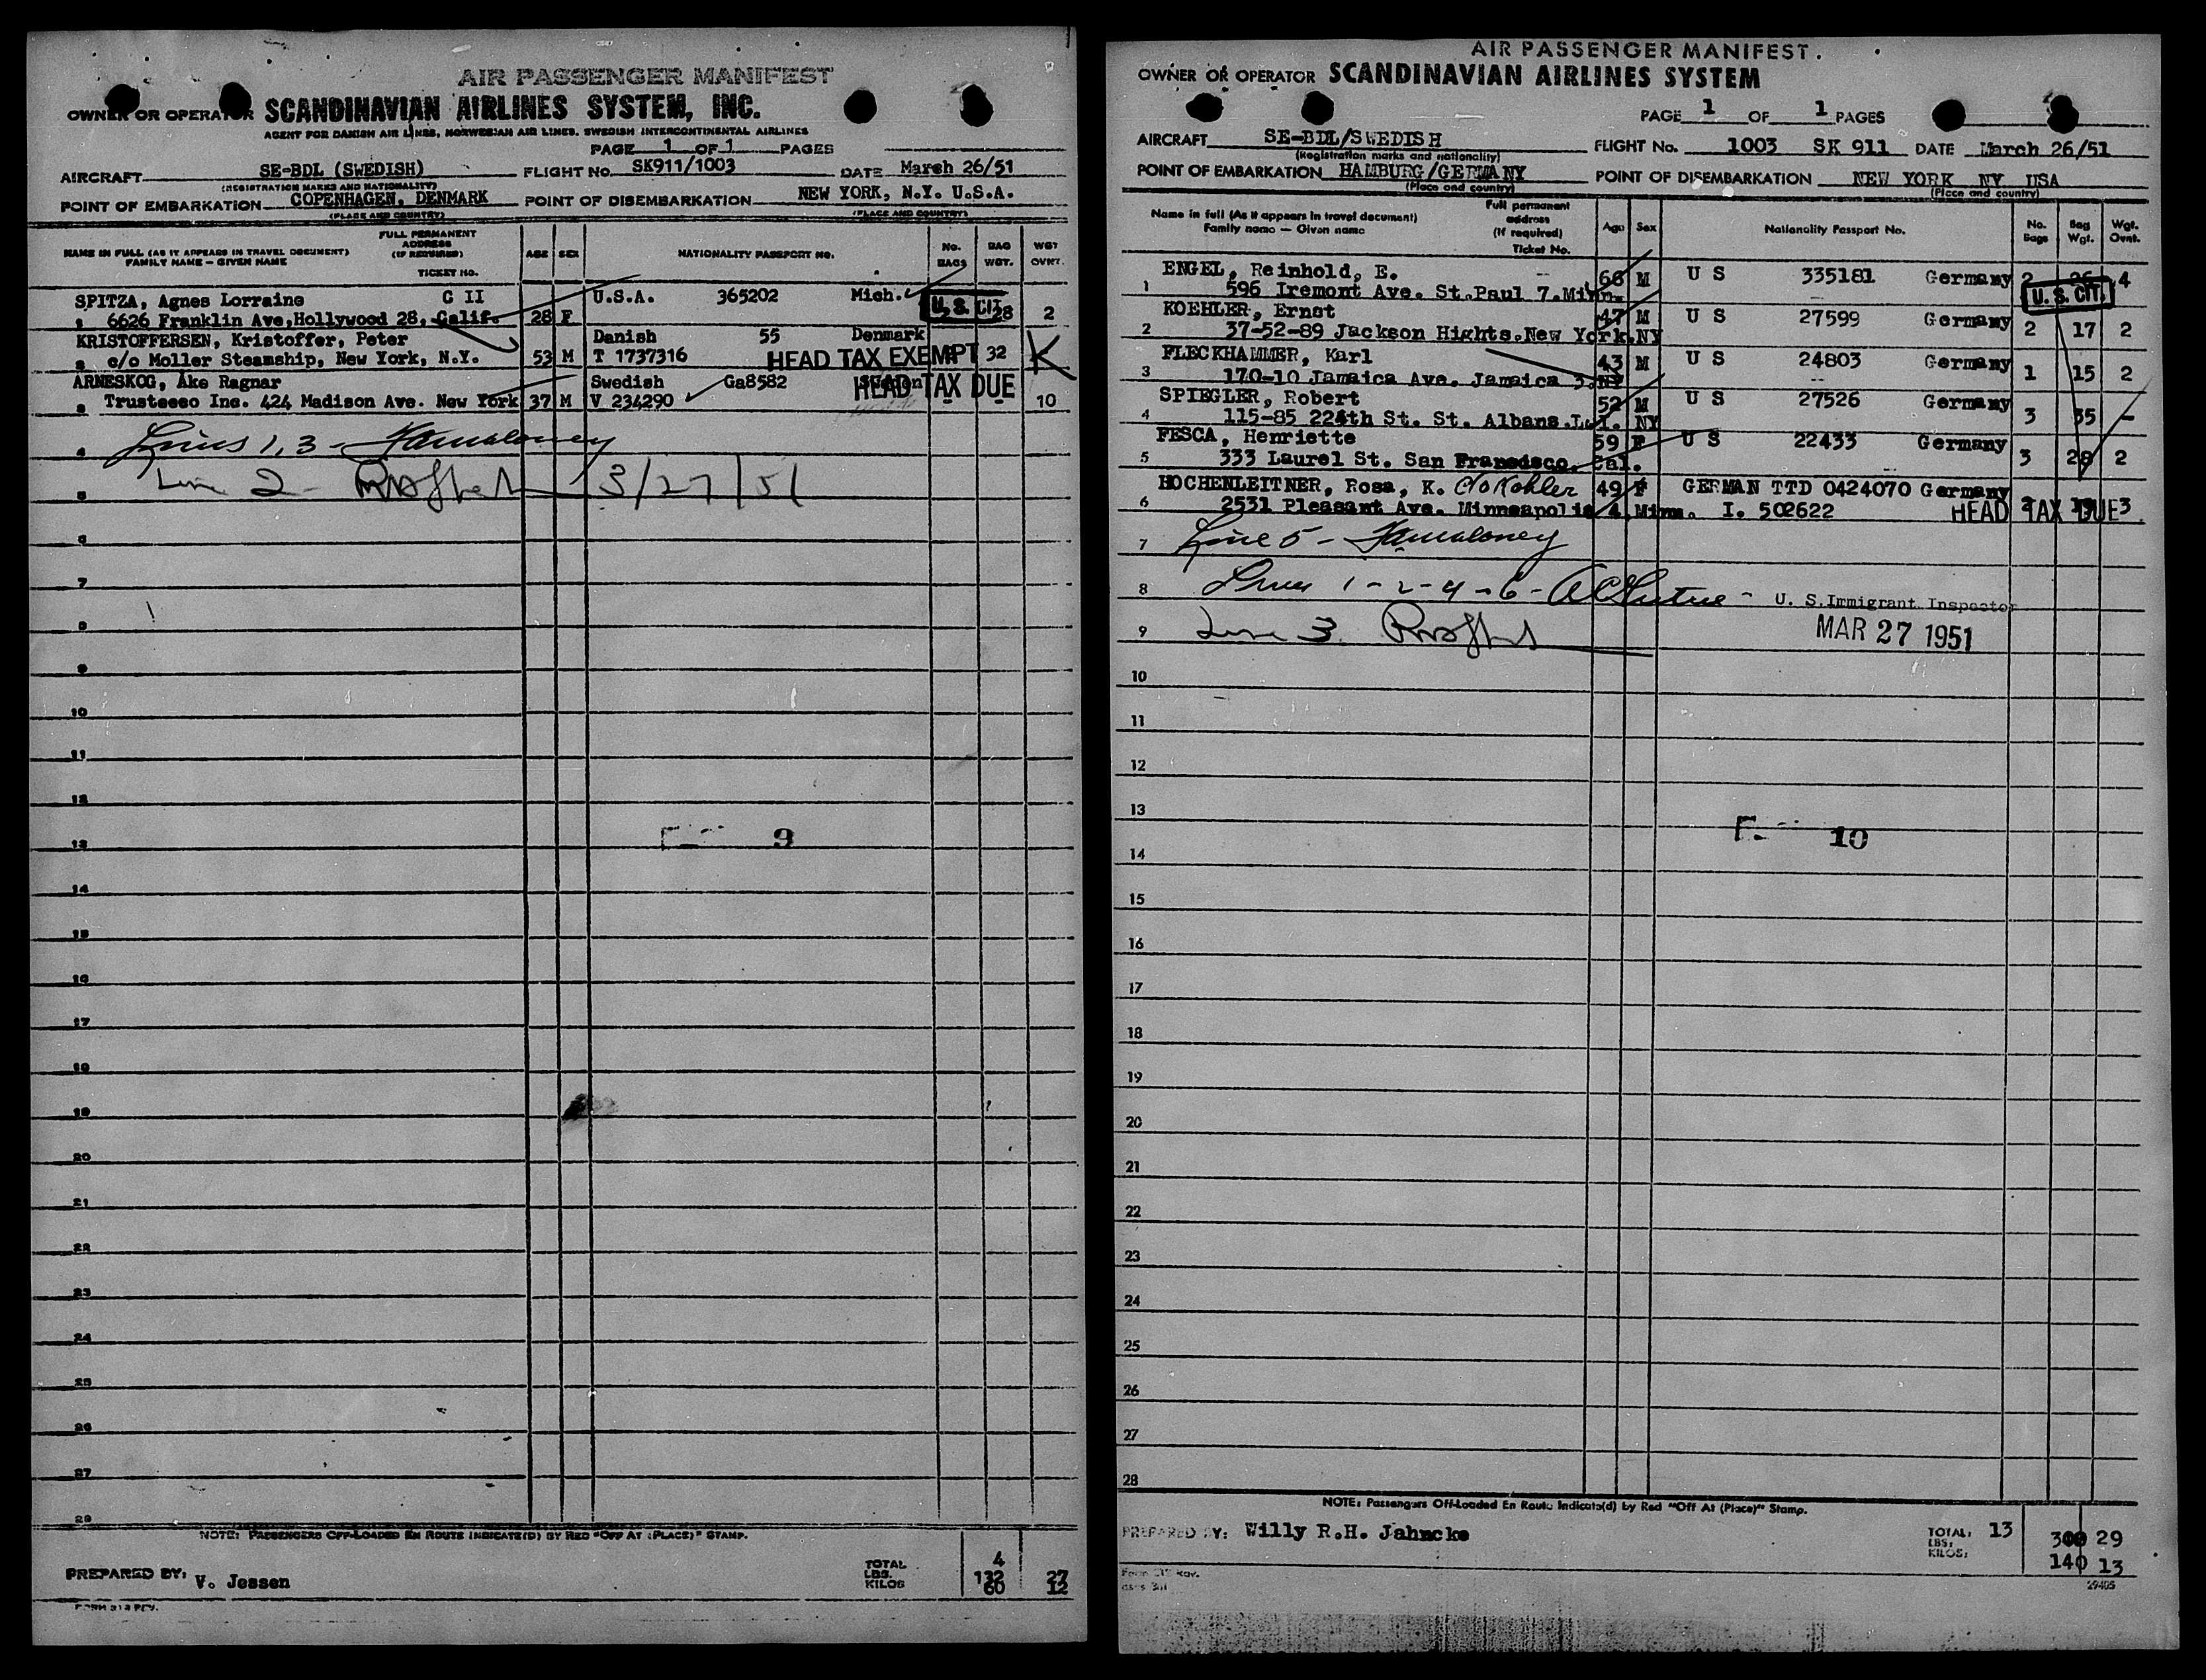 AIR PASSENGER MANIFEST
OWNER OR OPERATOR SCANDINAVIAN AIRLINES SYSTEM, INC.
AGENT FOR DANISH AIR LINES, NORWEGIAN AIR LINES, SWEDISH INTERCONTINENTAL AIRLINES
PAGE 1 OF 1 PAGES
AIRCRAFT SE-BDL (SWEDISH) FLIGHT No. SK911/1003 DATE March 26/51
(REGISTRATION MARKS AND NATIONALITY)
POINT OF EMBARKATION COPENHAGEN, DENMARK POINT OF DISEMBARKATION NEW YORK, N.Y. U.S.A.
(PLACE AND COUNTRY) (PLACE AND COUNTRY)
NAME IN FULL (AS IT APPEARS IN TRAVEL DOCUMENT) FAMILY NAME - GIVEN NAME FULL PERMANENT ADDRESS (IF REQUIRED) TICKET NO. AGE SEX NATIONALITY PASSPORT NO. NO. BAGS BAG WGT. WGT OVNT.
SPITZA, Agnes Lorraine C II U.S.A. 365202 Mich. U.S. CIT.
6626 Franklin Ave, Hollywood 28, Calif. 28 F 28 2
KRISTOFFERSEN, Kristoffer, Peter Danish 55 Denmark
c/o Moller Steamship, New York, N.Y. 53 M T 1737316 HEAD TAX EXEMPT 32 K
ARNESKOG, Åke Ragnar Swedish Ga8582 Sweden HEAD TAX DUE
Trusteeso Inc. 424 Madison Ave. New York 37 M V 234290 10
4 Lines 1, 3 -
5 Line 2 - 3/27/51
6
7
8
9
10
11
12
13 9
14
15
16
17
18
19
20
21
22
23
24
25
26
27
28
NOTE: PASSENGERS OFF-LOADED EN ROUTE INDICATE(D) BY RED "OFF AT (PLACE)" STAMP.
PREPARED BY: V. Jessen
TOTAL 4
LBS. 132 27
KILOS 60 12
FORM 313 REV.
AIR PASSENGER MANIFEST.
OWNER OR OPERATOR SCANDINAVIAN AIRLINES SYSTEM
PAGE 1 OF 1 PAGES
AIRCRAFT SE-BDL/SWEDISH FLIGHT No. 1003 SK 911 DATE March 26/51
(Registration marks and nationality)
POINT OF EMBARKATION HAMBURG/GERMANY POINT OF DISEMBARKATION NEW YORK NY USA
(Place and country) (Place and country)
Name in full (As it appears in travel document) Family name - Given name Full permanent address (If required) Ticket No. Age Sex Nationality Passport No. No. Bags Bag Wgt. Wgt. Ovnt.
1 ENGEL, Reinhold, E. -- 66 M U S 335181 Germany 2 26 4
596 Iremont Ave. St.Paul 7.Minn. U.S. CIT.
2 KOEHLER, Ernst 47 M U S 27599 Germany 2 17 2
37-52-89 Jackson Hights.New York.NY
3 FLECKHAMMER, Karl 43 M U S 24803 Germany 1 15 2
170-10 Jamaica Ave. Jamaica 3.NY
4 SPIEGLER, Robert 52 M U S 27526 Germany 3 35 -
115-85 224th St. St. Albans.L.I. NY
5 FESCA, Henriette 59 F U S 22433 Germany 3 28 2
333 Laurel St. San Francisco. Cal.
6 HOCHENLEITNER, Rosa, K. c/o Kohler 49 F GERMAN TTD 0424070 Germany
2531 Pleasant Ave. Minneapolis 4.Minn. I. 502622 HEAD TAX DUE 3
7 Line 5 -
8 Lines 1-2-4-6- U. S. Immigrant Inspector
9 Line 3. MAR 27 1951
10
11
12
13 10
14
15
16
17
18
19
20
21
22
23
24
25
26
27
28
NOTE: Passengers Off-Loaded En Route Indicate(d) by Red "Off At (Place)" Stamp.
PREPARED BY: Willy R.H. Jahncke
TOTAL: 13
LBS: 300 29
KILOS: 140 13
29405